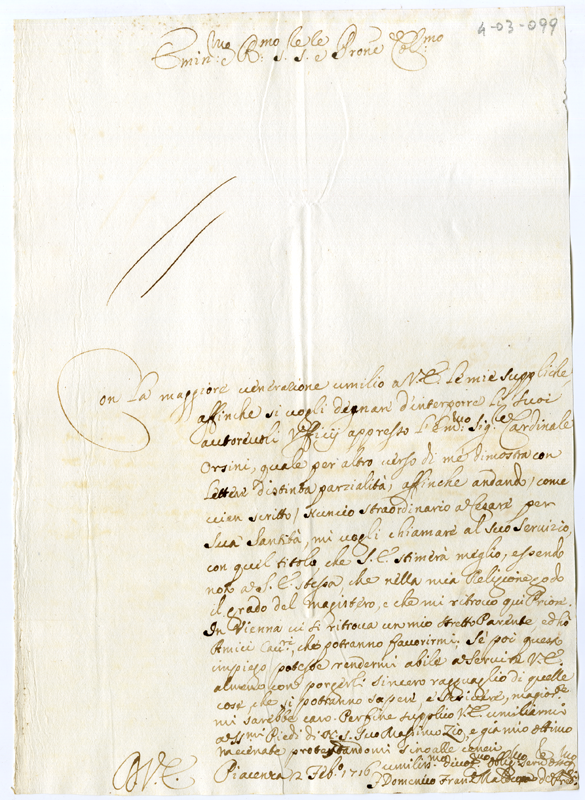 4-03-099
Emin:mo e R:mo S.re S.re e Prone Col:mo
Con la maggiore venerazione umilio a V.E. le mie suppliche,
affinche si vogli degnare d'interporre li suoi
autorevoli Ufficij appresso l'Em:mo Sig:re Cardinale
Orsini, quale per altro verso di me dimostra con
lettere distinta parzialità, affinche andando, come
vien scritto, Nuncio straordinario a Cesare per
Sua Santità, mi vogli chiamare al suo servizio,
con quel titolo che S.E. stimerà meglio, essendo
noto a S.E. stessa che nella mia Religione godo
il grado del magistero, e che mi ritrovo qui Priore.
In Vienna vi si ritrova un mio stretto Parente, ed ho
Amici Cav:ri, che potranno favorirmi. Se poi questo
impiego potesse rendermi abile a servire V.E.
almeno con porgerli sincero ragguaglio di quelle
cose che si potranno sapere, e scrivere, maggior:te
mi sarebbe caro. Per fine supplico V.E. umiliarmi
a Piedi di suo Zio, e già mio ottimo
mecenate protestandomi sino alle ceneri
D V.E.
Piacenza 12 Feb:o 1716
umilis:mo divot:mo oblig:mo
F. Domenico Fran:o